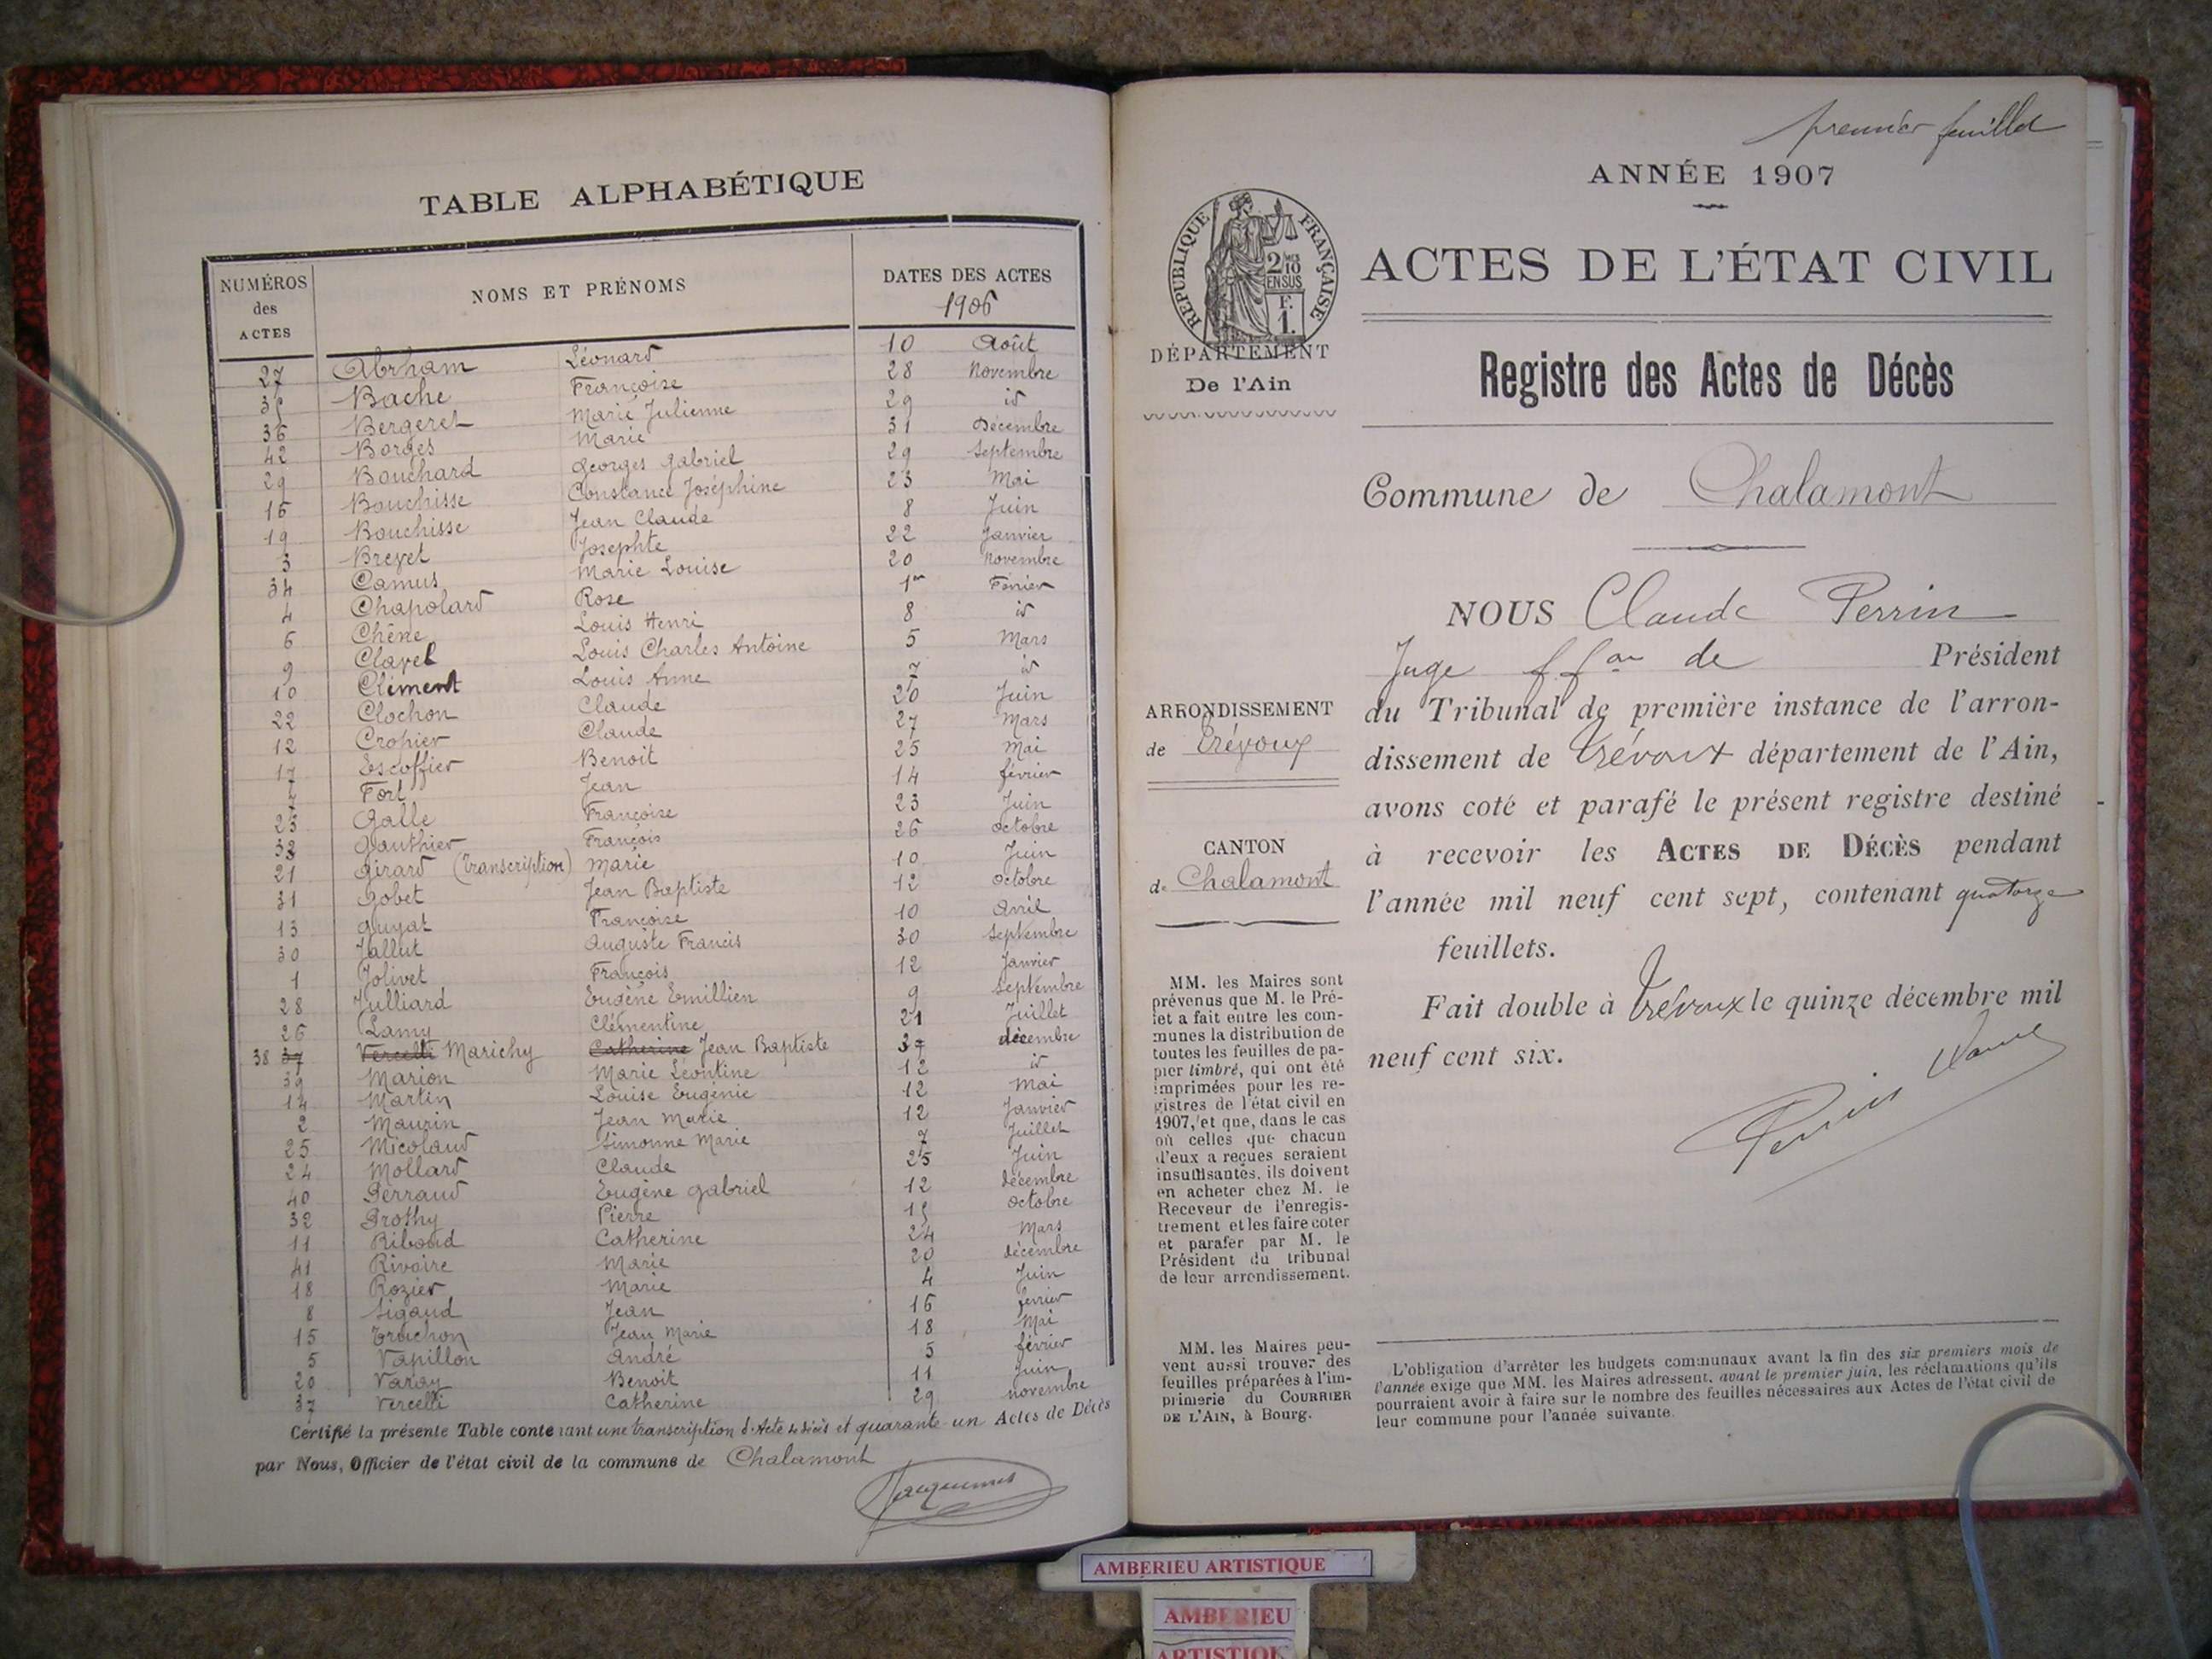 TABLE ALPHABÉTIQUE
NUMÉROS des ACTES NOMS ET PRÉNOMS DATES DES ACTES 1906
27 Abrham Léonard 10 Août
35 Bache Françoise 28 Novembre
36 Bergeret Marie Julienne 29 id
42 Borges Marie 31 Décembre
29 Bouchard Georges Gabriel 29 Septembre
16 Bouchisse Constance Joséphine 23 Mai
19 Bouchisse Jean Claude 8 Juin
3 Brevet Josephte 22 Janvier
34 Camus Marie Louise 20 Novembre
4 Chapolard Rose 1er Février
6 Chêne Louis Henri 8 id
9 Clavel Louis Charles Antoine 5 Mars
10 Clément Louis Anne 7 id
22 Clochon Claude 20 Juin
12 Cropier Claude 27 Mars
17 Escoffier Benoit 25 Mai
7 Fort Jean 14 février
23 Galle Françoise 23 Juin
33 Gauthier François 26 octobre
21 Girard (transcription) Marie 10 Juin
31 Gobet Jean Baptiste 12 octobre
13 Guyat Françoise 10 Avril
30 Jallut Auguste Francis 30 Septembre
1 Jolivet François 12 Janvier
28 Julliard Eugène Emillien 9 Septembre
26 Lamy Clémentine 21 Juillet
38 37 Vercelli Marichy Catherine Jean Baptiste décembre
39 Marion Marie Léontine 12 id
14 Martin Louise Eugénie 12 Mai
2 Maurin Jean Marie 12 Janvier
25 Micolaud Simonne Marie 7 Juillet
24 Mollard Claude 25 Juin
40 Perraud Eugène Gabriel 12 décembre
32 Prothy Pierre 15 octobre
11 Riboud Catherine 24 Mars
41 Rivoire Marie 20 décembre
18 Rozier Marie 4 Juin
8 Sigaud Jean 16 fevrier
15 Truchon Jean Marie 18 Mai
5 Vapillon André 5 février
20 Varay Benoit 11 Juin
37 Vercelli Catherine 29 novembre
Certifié la présente Table contenant une transcription d'Acte de décès et quarante-un Actes de Décès
par Nous, Officier de l'état civil de la commune de Chalamont
Jacquemet
premier feuillet
ANNÉE 1907
RÉPUBLIQUE FRANÇAISE
2/10 EN SUS
F. 1.
ACTES DE L'ÉTAT CIVIL
DÉPARTEMENT
De l'Ain
Registre des Actes de Décès
Commune de Chalamont
NOUS Claude Perrin
Juge f.fon de Président
du Tribunal de première instance de l'arron-
dissement de Trévoux département de l'Ain,
avons coté et parafé le présent registre destiné
à recevoir les ACTES DE DÉCÈS pendant
l'année mil neuf cent sept, contenant quatorze
feuillets.
Fait double à Trévoux le quinze décembre mil
neuf cent six.
Perrin
ARRONDISSEMENT
de Trévoux
CANTON
de Chalamont
MM. les Maires sont
prévenus que M. le Pré-
fet a fait entre les com-
munes la distribution de
toutes les feuilles de pa-
pier timbré, qui ont été
imprimées pour les re-
gistres de l'état civil en
1907, et que, dans le cas
où celles que chacun
d'eux a reçues seraient
insuffisantes, ils doivent
en acheter chez M. le
Receveur de l'enregis-
trement et les faire coter
et parafer par M. le
Président du tribunal
de leur arrondissement.
MM. les Maires peu-
vent aussi trouver des
feuilles préparées à l'im-
primerie du COURRIER
DE L'AIN, à Bourg.
L'obligation d'arrêter les budgets communaux avant la fin des six premiers mois de
l'année exige que MM. les Maires adressent, avant le premier juin, les réclamations qu'ils
pourraient avoir à faire sur le nombre des feuilles nécessaires aux Actes de l'état civil de
leur commune pour l'année suivante.
AMBERIEU ARTISTIQUE
AMBERIEU
ARTISTIQUE